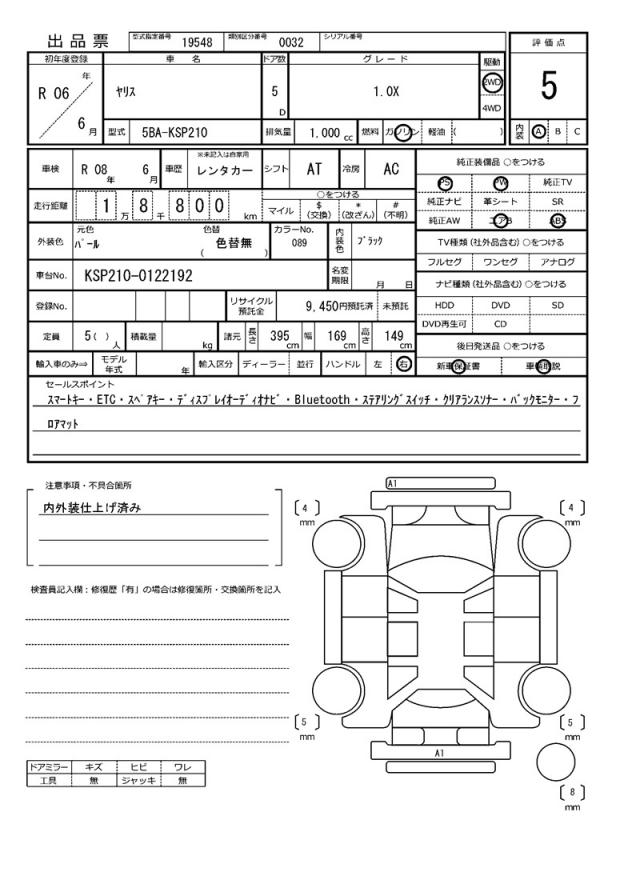 出 品 票 型式指定番号 19548 類別区分番号 0032 シリアル番号
評 価 点
初年度登録 車 名 ドア数 グ レ ー ド 駆動
R 06 年 ヤリス 5 D 1.0X 2WD 5
4WD
6 月 型式 5BA-KSP210 排気量 1.000 cc 燃料 ガソリン 軽油 ( ) 内装 A B C
車検 R 08 年 6 月 車歴 ※未記入は自家用 レンタカー シフト AT 冷房 AC 純正装備品 ○をつける
PS PW 純正TV
走行距離 1 万 8 千 8 0 0 km ○をつける 純正ナビ 革シート SR
マイル $ (交換) * (改ざん) # (不明) 純正AW エアB ABS
外装色 元色 パール 色替 色替無 ( ) カラーNo. 089 内装色 ブラック TV種類 (社外品含む) ○をつける
フルセグ ワンセグ アナログ
車台No. KSP210-0122192 名変期限 月 日 ナビ種類 (社外品含む) ○をつける
登録No. リサイクル預託金 9,450円預託済 未預託 HDD DVD SD
DVD再生可 CD
定員 5 ( ) 人 積載量 kg 諸元 長さ 395 cm 幅 169 cm 高さ 149 cm 後日発送品 ○をつける
輸入車のみ⇒ モデル年式 年 輸入区分 ディーラー 並行 ハンドル 左 右 新車保証書 車輌取説
セールスポイント
スマートキー・ETC・スペアキー・ディスプレイオーディオナビ・Bluetooth・ステアリングスイッチ・クリアランスソナー・バックモニター・フ
ロアマット
注意事項・不具合箇所
内外装仕上げ済み
検査員記入欄：修復歴「有」の場合は修復箇所・交換箇所を記入
A1
4 mm
4 mm
5 mm
5 mm
A1
8 mm
ドアミラー キズ ヒビ ワレ
工具 無 ジャッキ 無